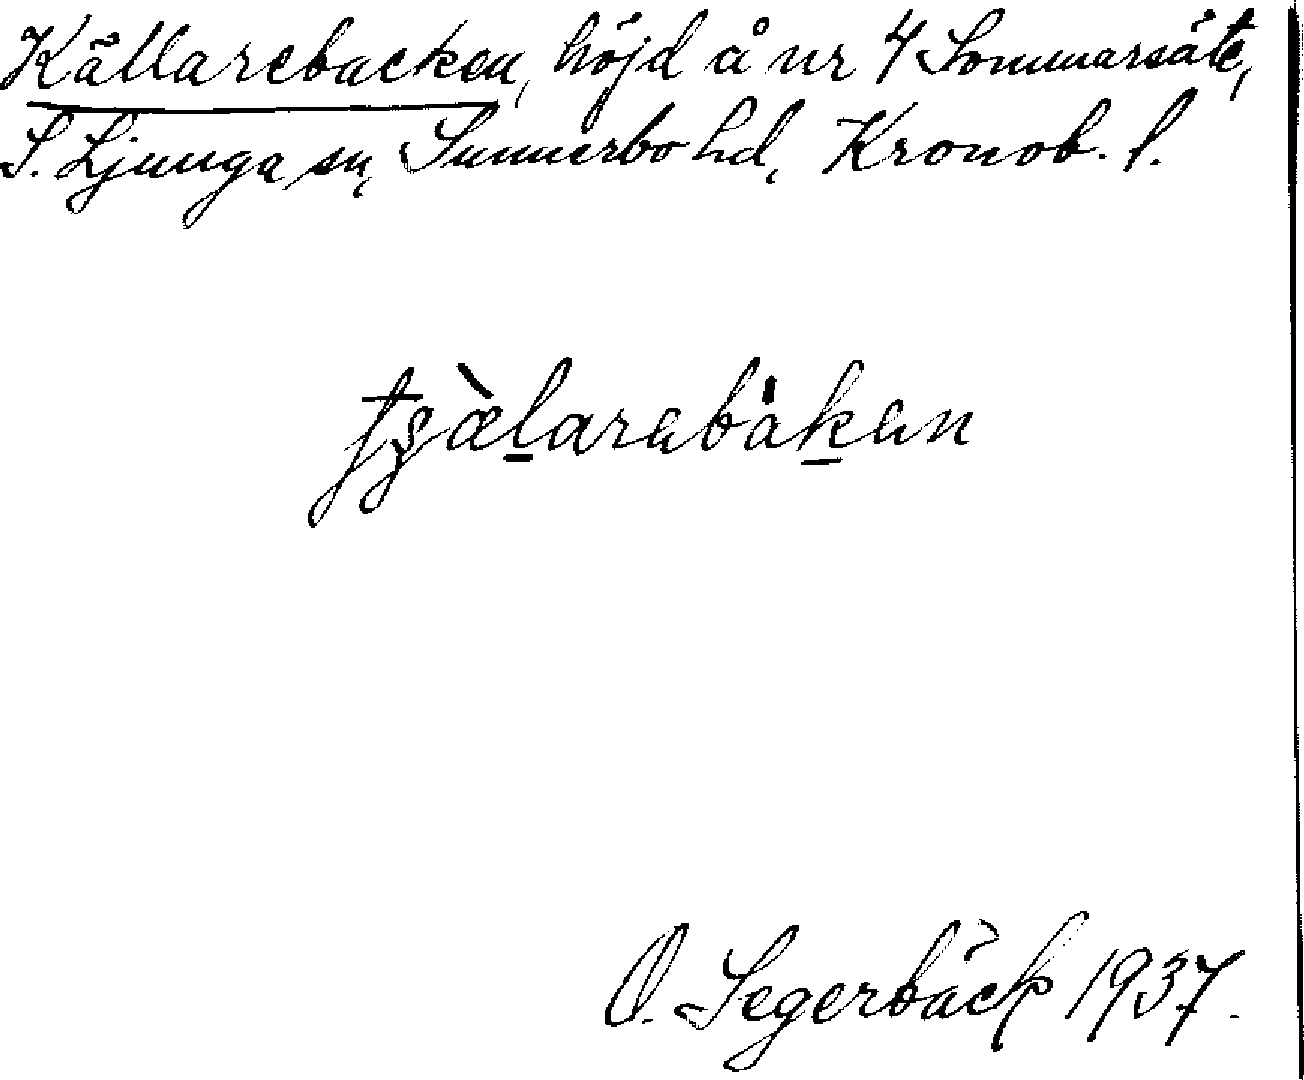 Källarebacken, höjd å nr 4 Sommarsäte,
S. Ljunga sn, Sunnerbo hd, Kronob. l.
tʂæ̀l̠arebåk̠en
O. Segerbäck 1937.